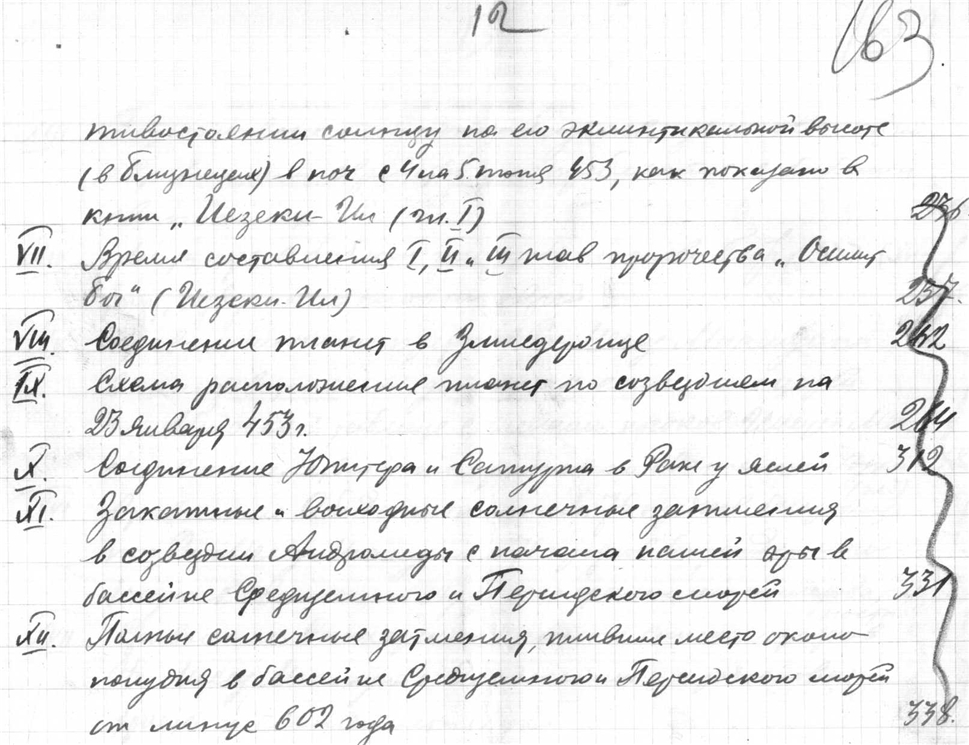 12
163
тивостоянии солнцу на его эклиптикальной высоте
(в близнецах) в ноч с 4 на 5 июня 453, как показано в
книги „Иезеки-Ил (гл. I)
236.
VII. Время составления I, II и III глав пророчества „Осилит
бог“ (Иезеки-Ил)
257.
VIII. Соединении планет в Змиедержце
262
IX. Схема расположение планет по созвездием на
23 Января 453 г.
264
X. Соединение Юпитера и Сатурна в Раке у яслей 312
XI. Закатные и восходные солнечные затмения
в созвездии Андромеды с начала нашей эры в
бассейне Средиземного и Персидского морей 331
XII. Полные солнечные затмения, имевшие место около
полудня в бассейне Средиземного и Персидского морей
от 602 года
338.